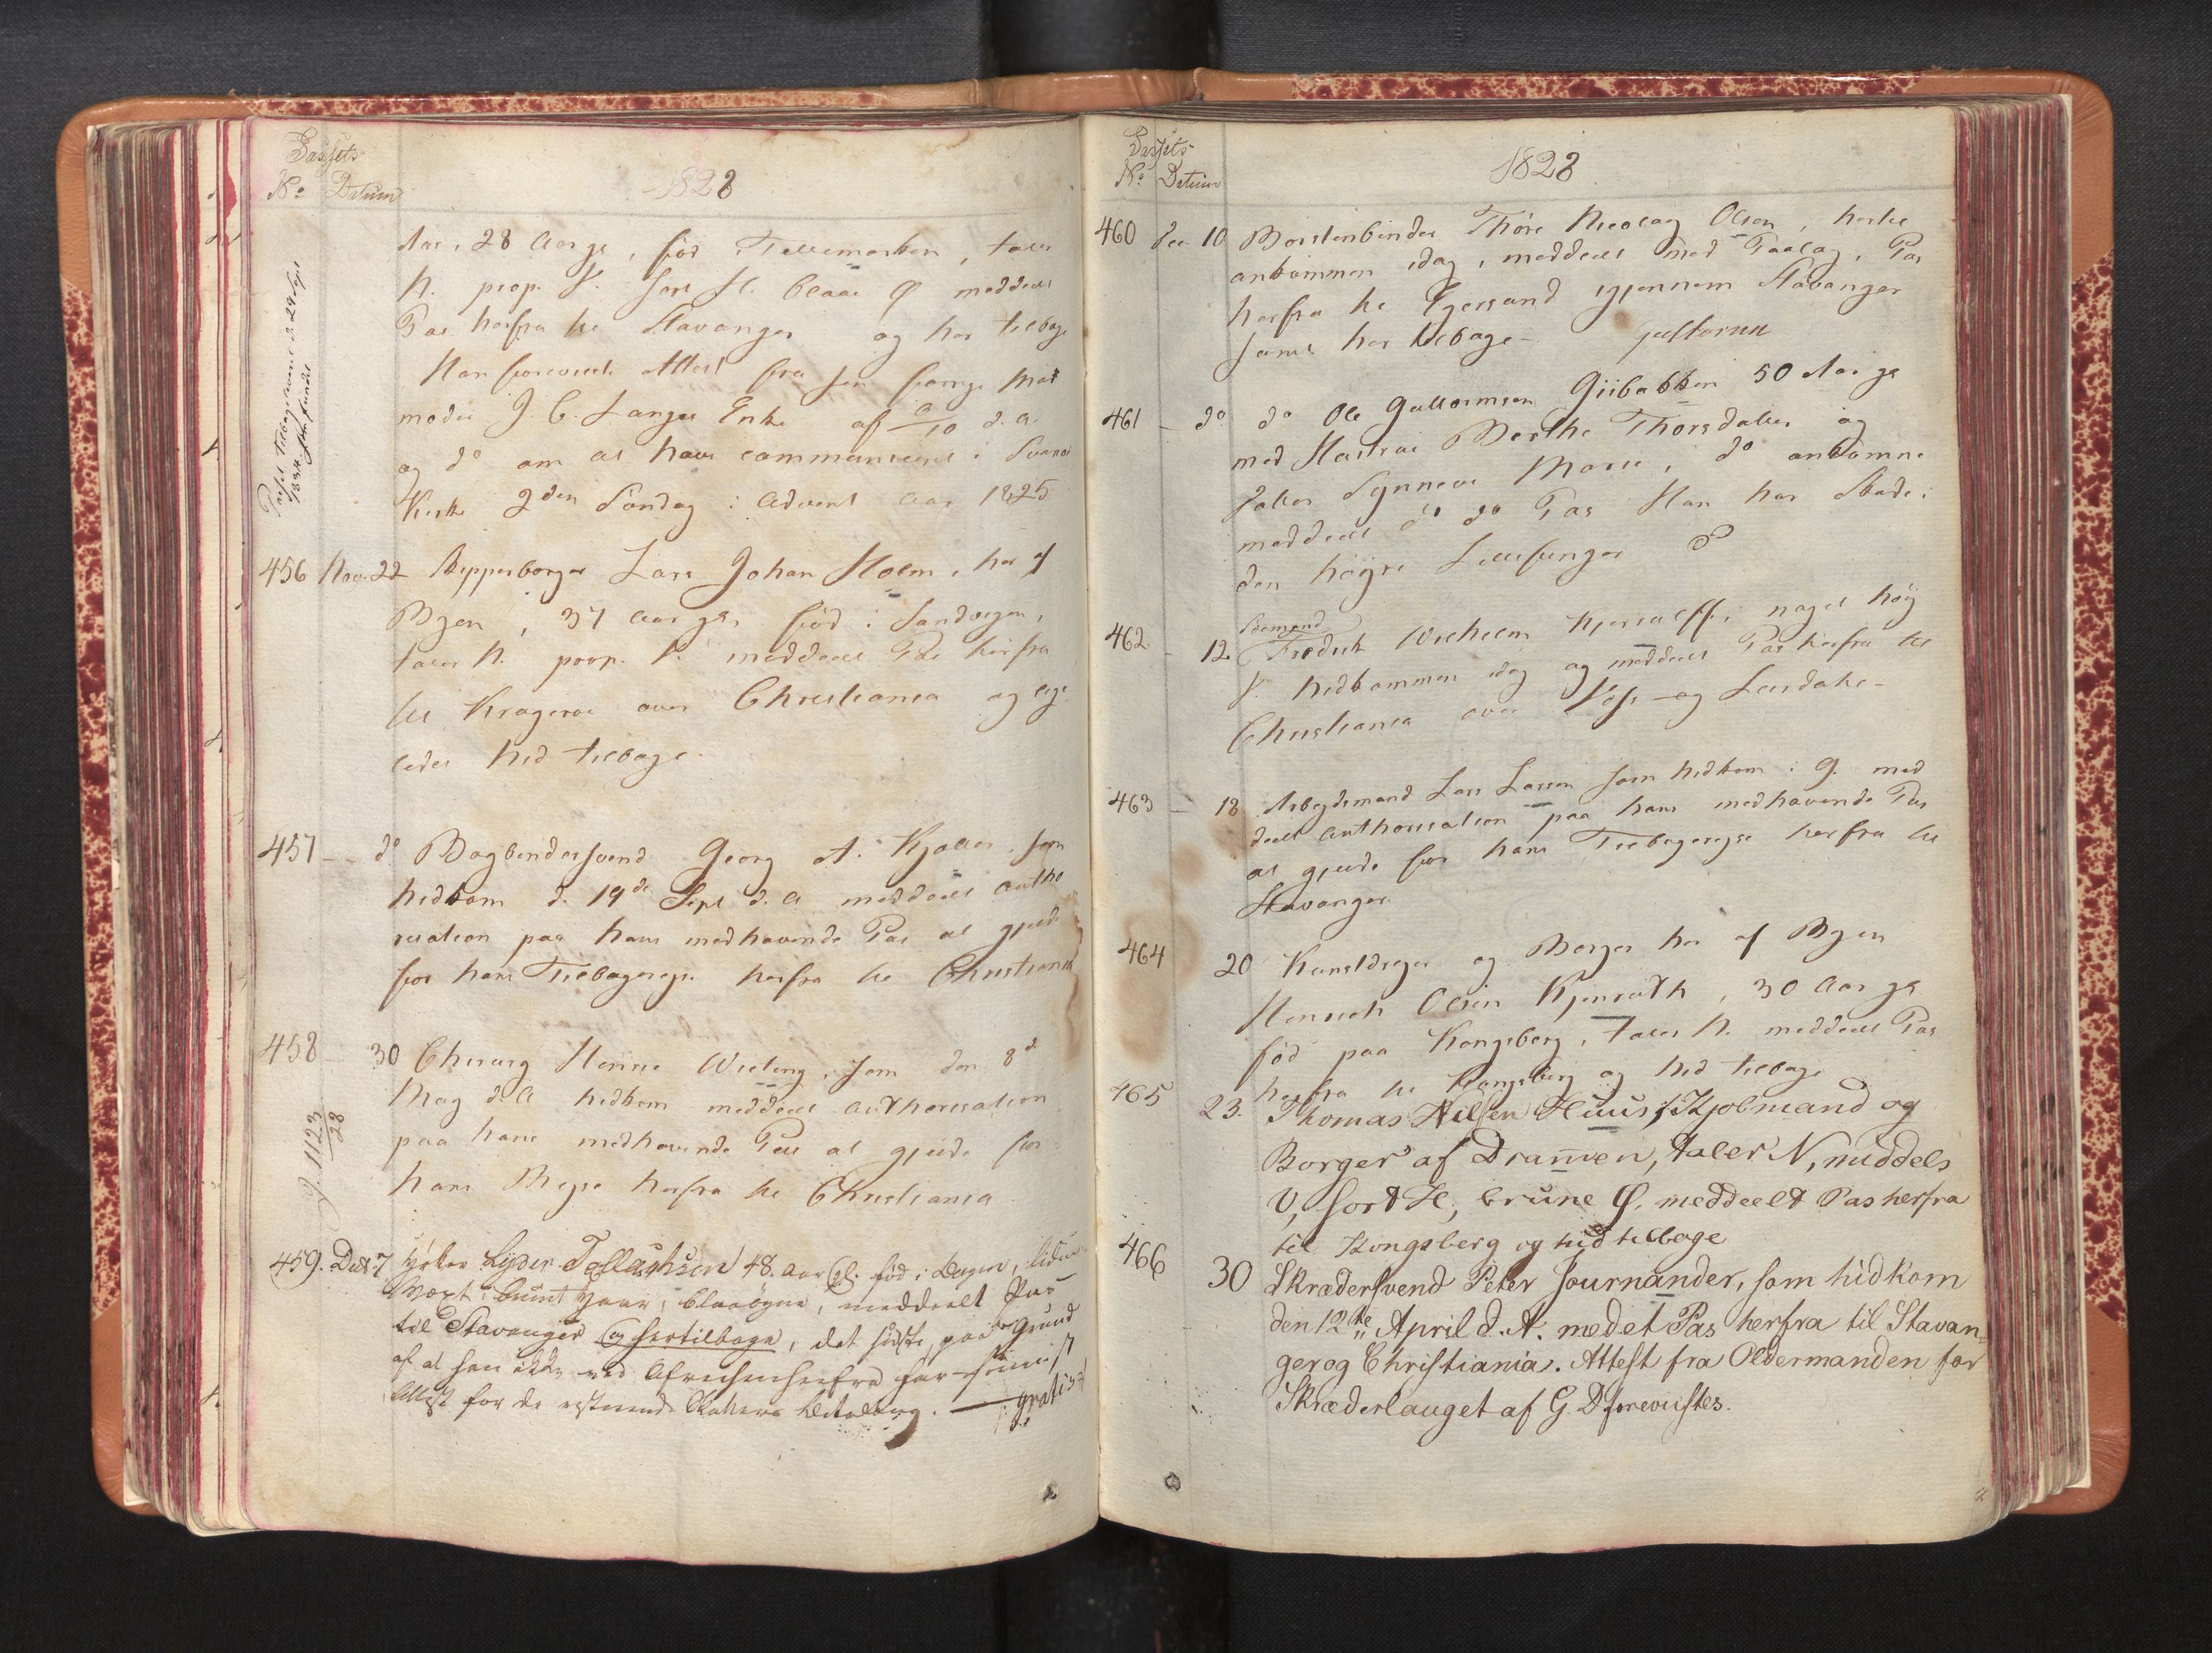 Passets
No Datum
1828
Aar, 28 Aar gl, fød i Tellemarken, taler
N. prop. V. sort H. blaae Ø meddeelt
Pas herfra til Stavanger og her tilbage
Han foreviste Attest fra sin forrige Mad
moder J. C. Langes Enke af 9/10 d. a.
og do om at have communiceret i
Kirke 2den Søndag i Advent Aar 1825
Passet tilbageleveret d. 29 Sept
1834.
456 Nov. 22 Lars Johan Holm, her af
Byen, 37 Aar gl, fød i Sandvigen,
taler N. prop. V. meddeelt Pas herfra
til Krageroe over Christiania og lige
ledes hid tilbage.
457 – do Bogbindersvend Georg A. Kjøller, som
hidkom d. 19de Sept d. A. meddeelt Autho
risation paa hans medhavende Pas at gjelde
for hans Tilbagereyse herfra til Christiania
458 – 30 Chirurg Henric Wieting, som den 8de
May d. A hidkom meddeelt Authorisation
paa hans medhavende Pas at gjelde for
hans Reyse herfra til Christiania
J. 1123/28
459. Dec 7 Lyder Tollachsen 48. Aar gl. fød i Bergen, liden
Væxt, bruunt Haar, blaa Øyne, meddeelt Pas
til Stavanger og hertilbage, det sidste paa Grund
af at han ikke ved Afreisen herfra har
Attest for de resterende Skatters Betaling. — gratis
Passets
No Datum
1828
460 Dec. 10 Børstenbinder Thore Nicolay Olsen, hertil
ankommen idag, meddeelt med Paalæg, Pas
herfra til Egersund igjennem Stavanger
samt her tilbage –
461 – do do Ole Guttormsen Giibakken 50 Aar gl
med Hustrue Berthe Thorsdatter og
Datter Synneve Marie, do ankomne
meddeelt do do Pas Han har Skade i
den høyre Lillefinger
462 – 12. Fredrik Wilhelm Kjerulff, noget høy
V. hidkommen idag og meddeelt Pas herfra til
Christiania over Voss – og Leirdahl –
463 – 18 Arbeydsmand Lars Larsen som hidkom i G. med
deelt Authorisation paa hans medhavende Pas
at gjelde for hans Tilbagereyse herfra til
Stavanger.
464 20 Kunstdreyer og Borger her af Byen
Henrich Olsen Kjenrudth, 30 Aar gl
fød paa Kongsberg, taler N. meddeelt Pas
herfra til Kongsberg og hid tilbage
465 23. Thomas Nilsen Huus, Kjøbmand og
Borger af Dramen, taler N, middels
V, sort H, brune Ø, meddeelt Pas herfra
til Kongsberg og hid tilbage
466 30 Skrædersvend Peter Journander, som hidkom
den 12te April d. A. med et Pas herfra til Stavan
ger og Christiania. Attest fra Oldermanden for
Skræderlauget af G. D foreviistes.